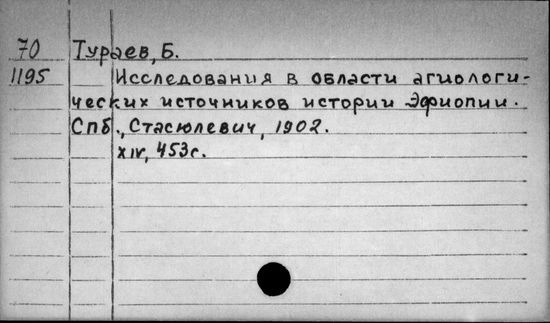 70 Тураев, Б.
1195 Исследования в области агиологи-
ческих источников истории Эфиопии.
Спб., Стасюлевич, 1902.
XIV, 453с.